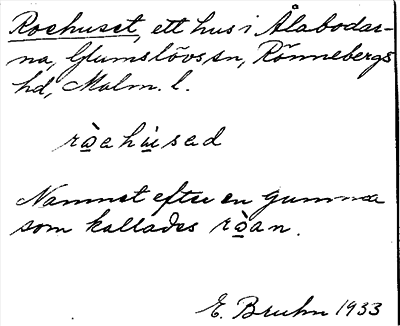 Roehuset, ett hus i Ålabodar-
na, Glumslövs sn, Rönnebergs
hd, Malm. l.
rò̱ahu̱̇sad
Namnet efter en gumma
som kallades rò̱an.
E. Bruhn 1933